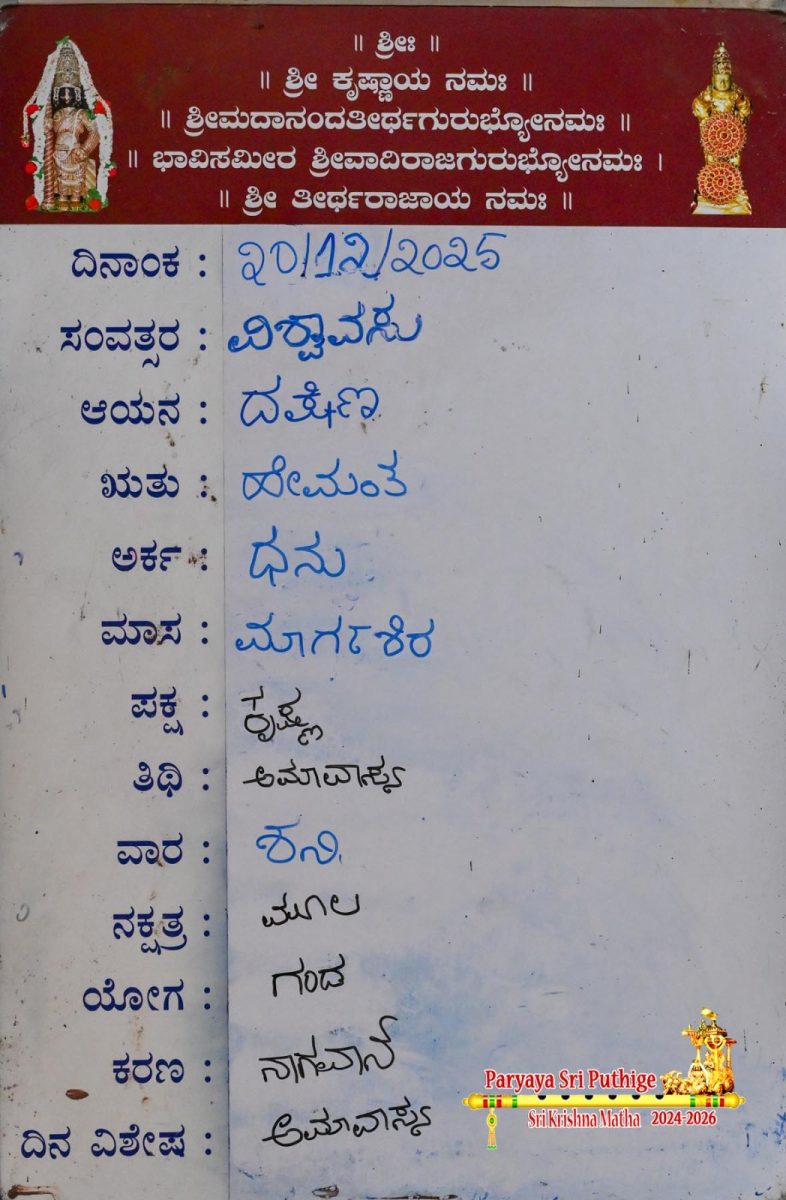 ॥ ಶ್ರೀಃ ॥
॥ ಶ್ರೀ ಕೃಷ್ಣಾಯ ನಮಃ ॥
॥ ಶ್ರೀಮದಾನಂದತೀರ್ಥಗುರುಭ್ಯೋನಮಃ ॥
॥ ಭಾವಿಸಮೀರ ಶ್ರೀವಾದಿರಾಜಗುರುಭ್ಯೋನಮಃ ।
॥ ಶ್ರೀ ತೀರ್ಥರಾಜಾಯ ನಮಃ ॥
ದಿನಾಂಕ : ೨೦/12/೨೦೨5
ಸಂವತ್ಸರ : ವಿಶ್ವಾವಸು
ಆಯನ : ದಕ್ಷಿಣ
ಋತು : ಹೇಮಂತ
ಅರ್ಕ : ಧನು
ಮಾಸ : ಮಾರ್ಗಶಿರ
ಪಕ್ಷ : ಕೃಷ್ಣ
ತಿಥಿ : ಅಮಾವಾಸ್ಯ
ವಾರ : ಶನಿ.
ನಕ್ಷತ್ರ : ಮೂಲ
ಯೋಗ : ಗಂಡ
ಕರಣ : ನಾಗವಾನ್
ದಿನ ವಿಶೇಷ : ಅಮಾವಾಸ್ಯ
Paryaya Sri Puthige
Sri Krishna Matha 2024-2026